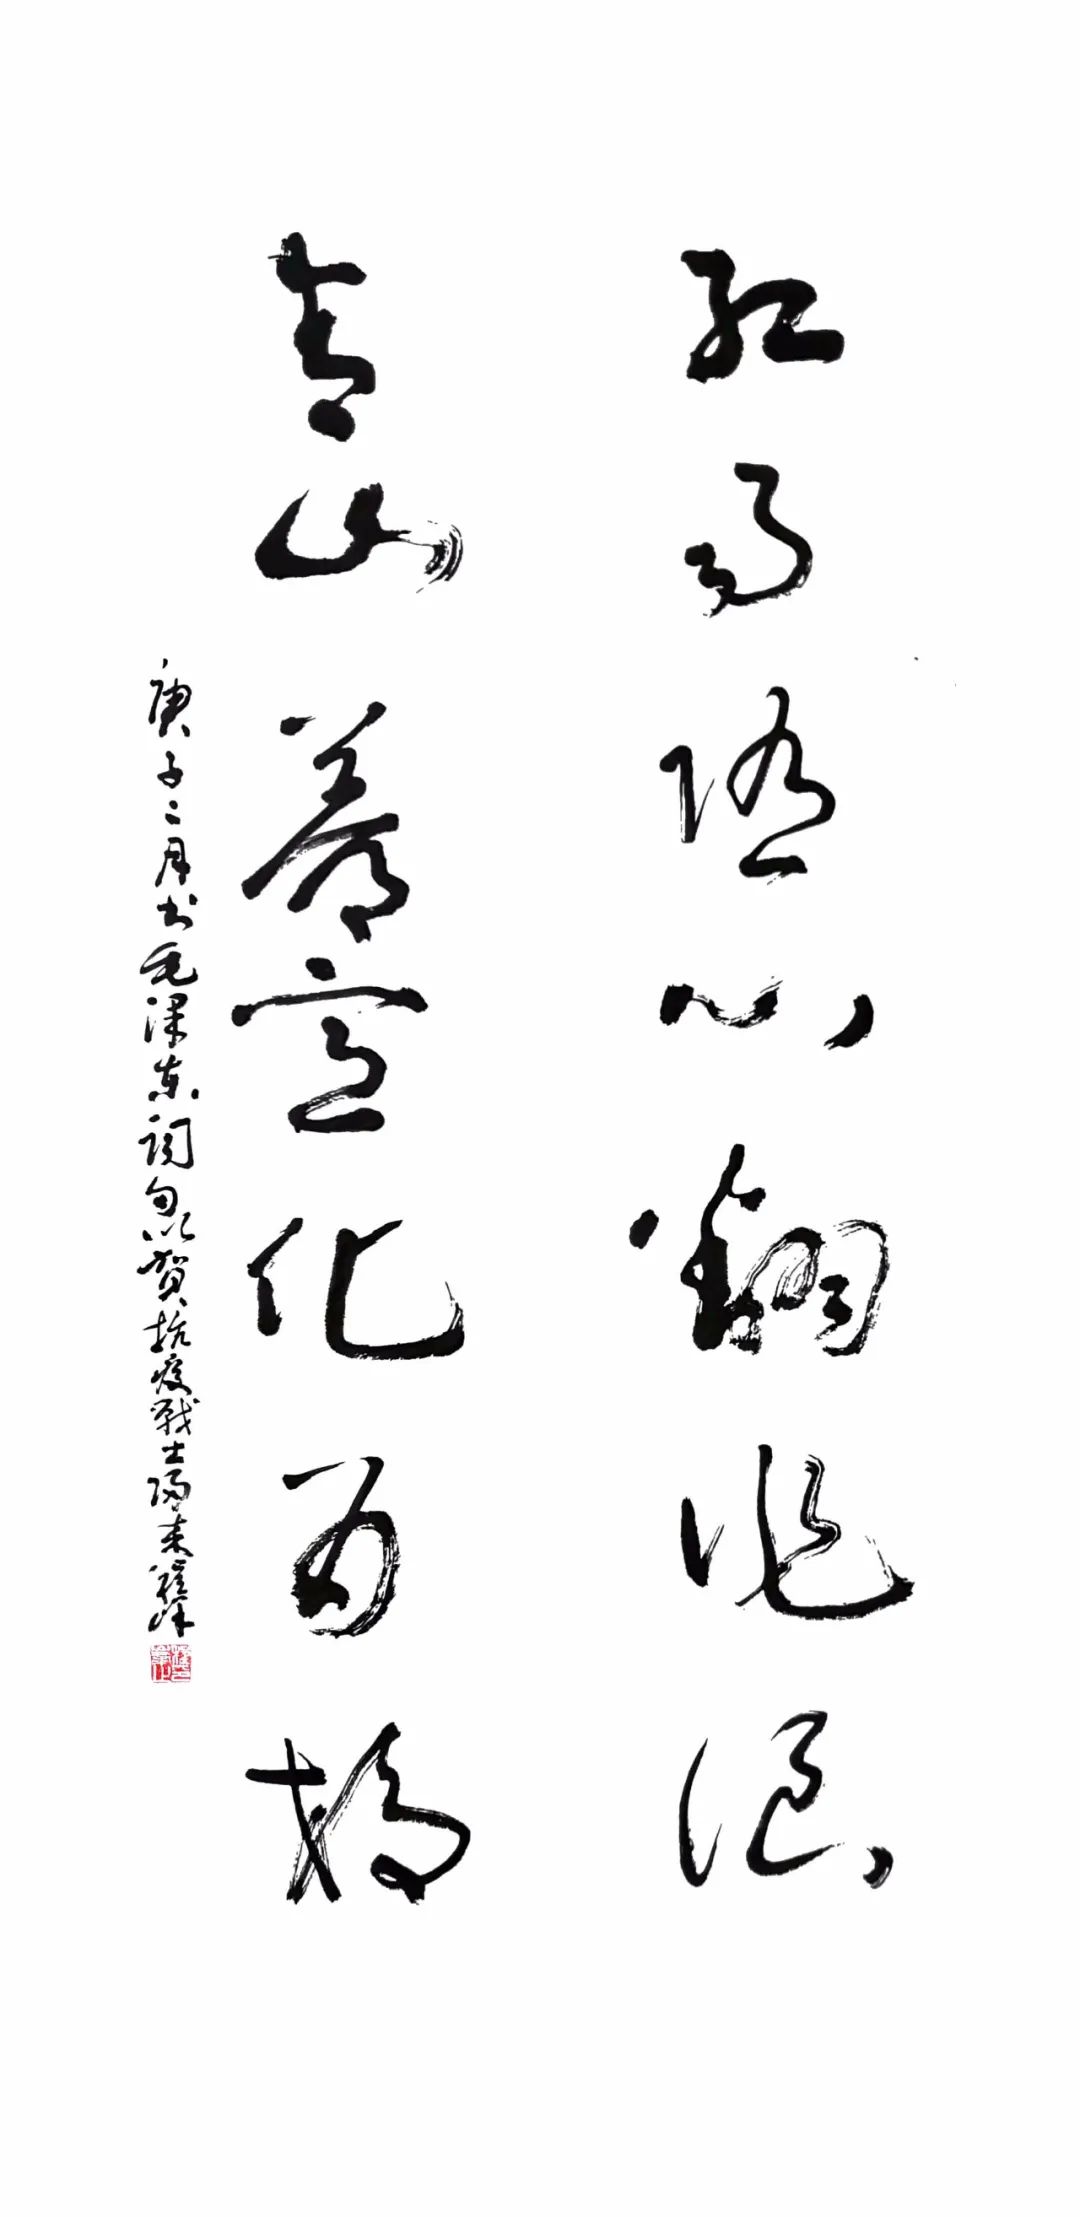 红雨随心翻作浪
青山着意化为桥
庚子二月书毛泽东词句以贺抗疫战士归来